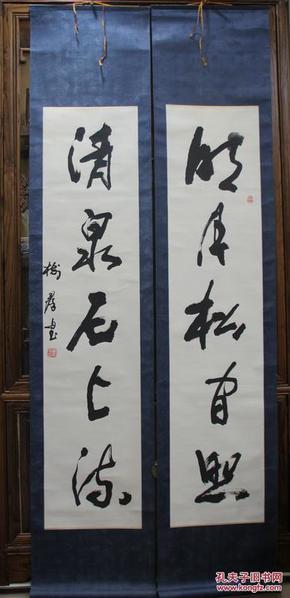 明月松间照
清泉石上流
树群书
孔夫子旧书网